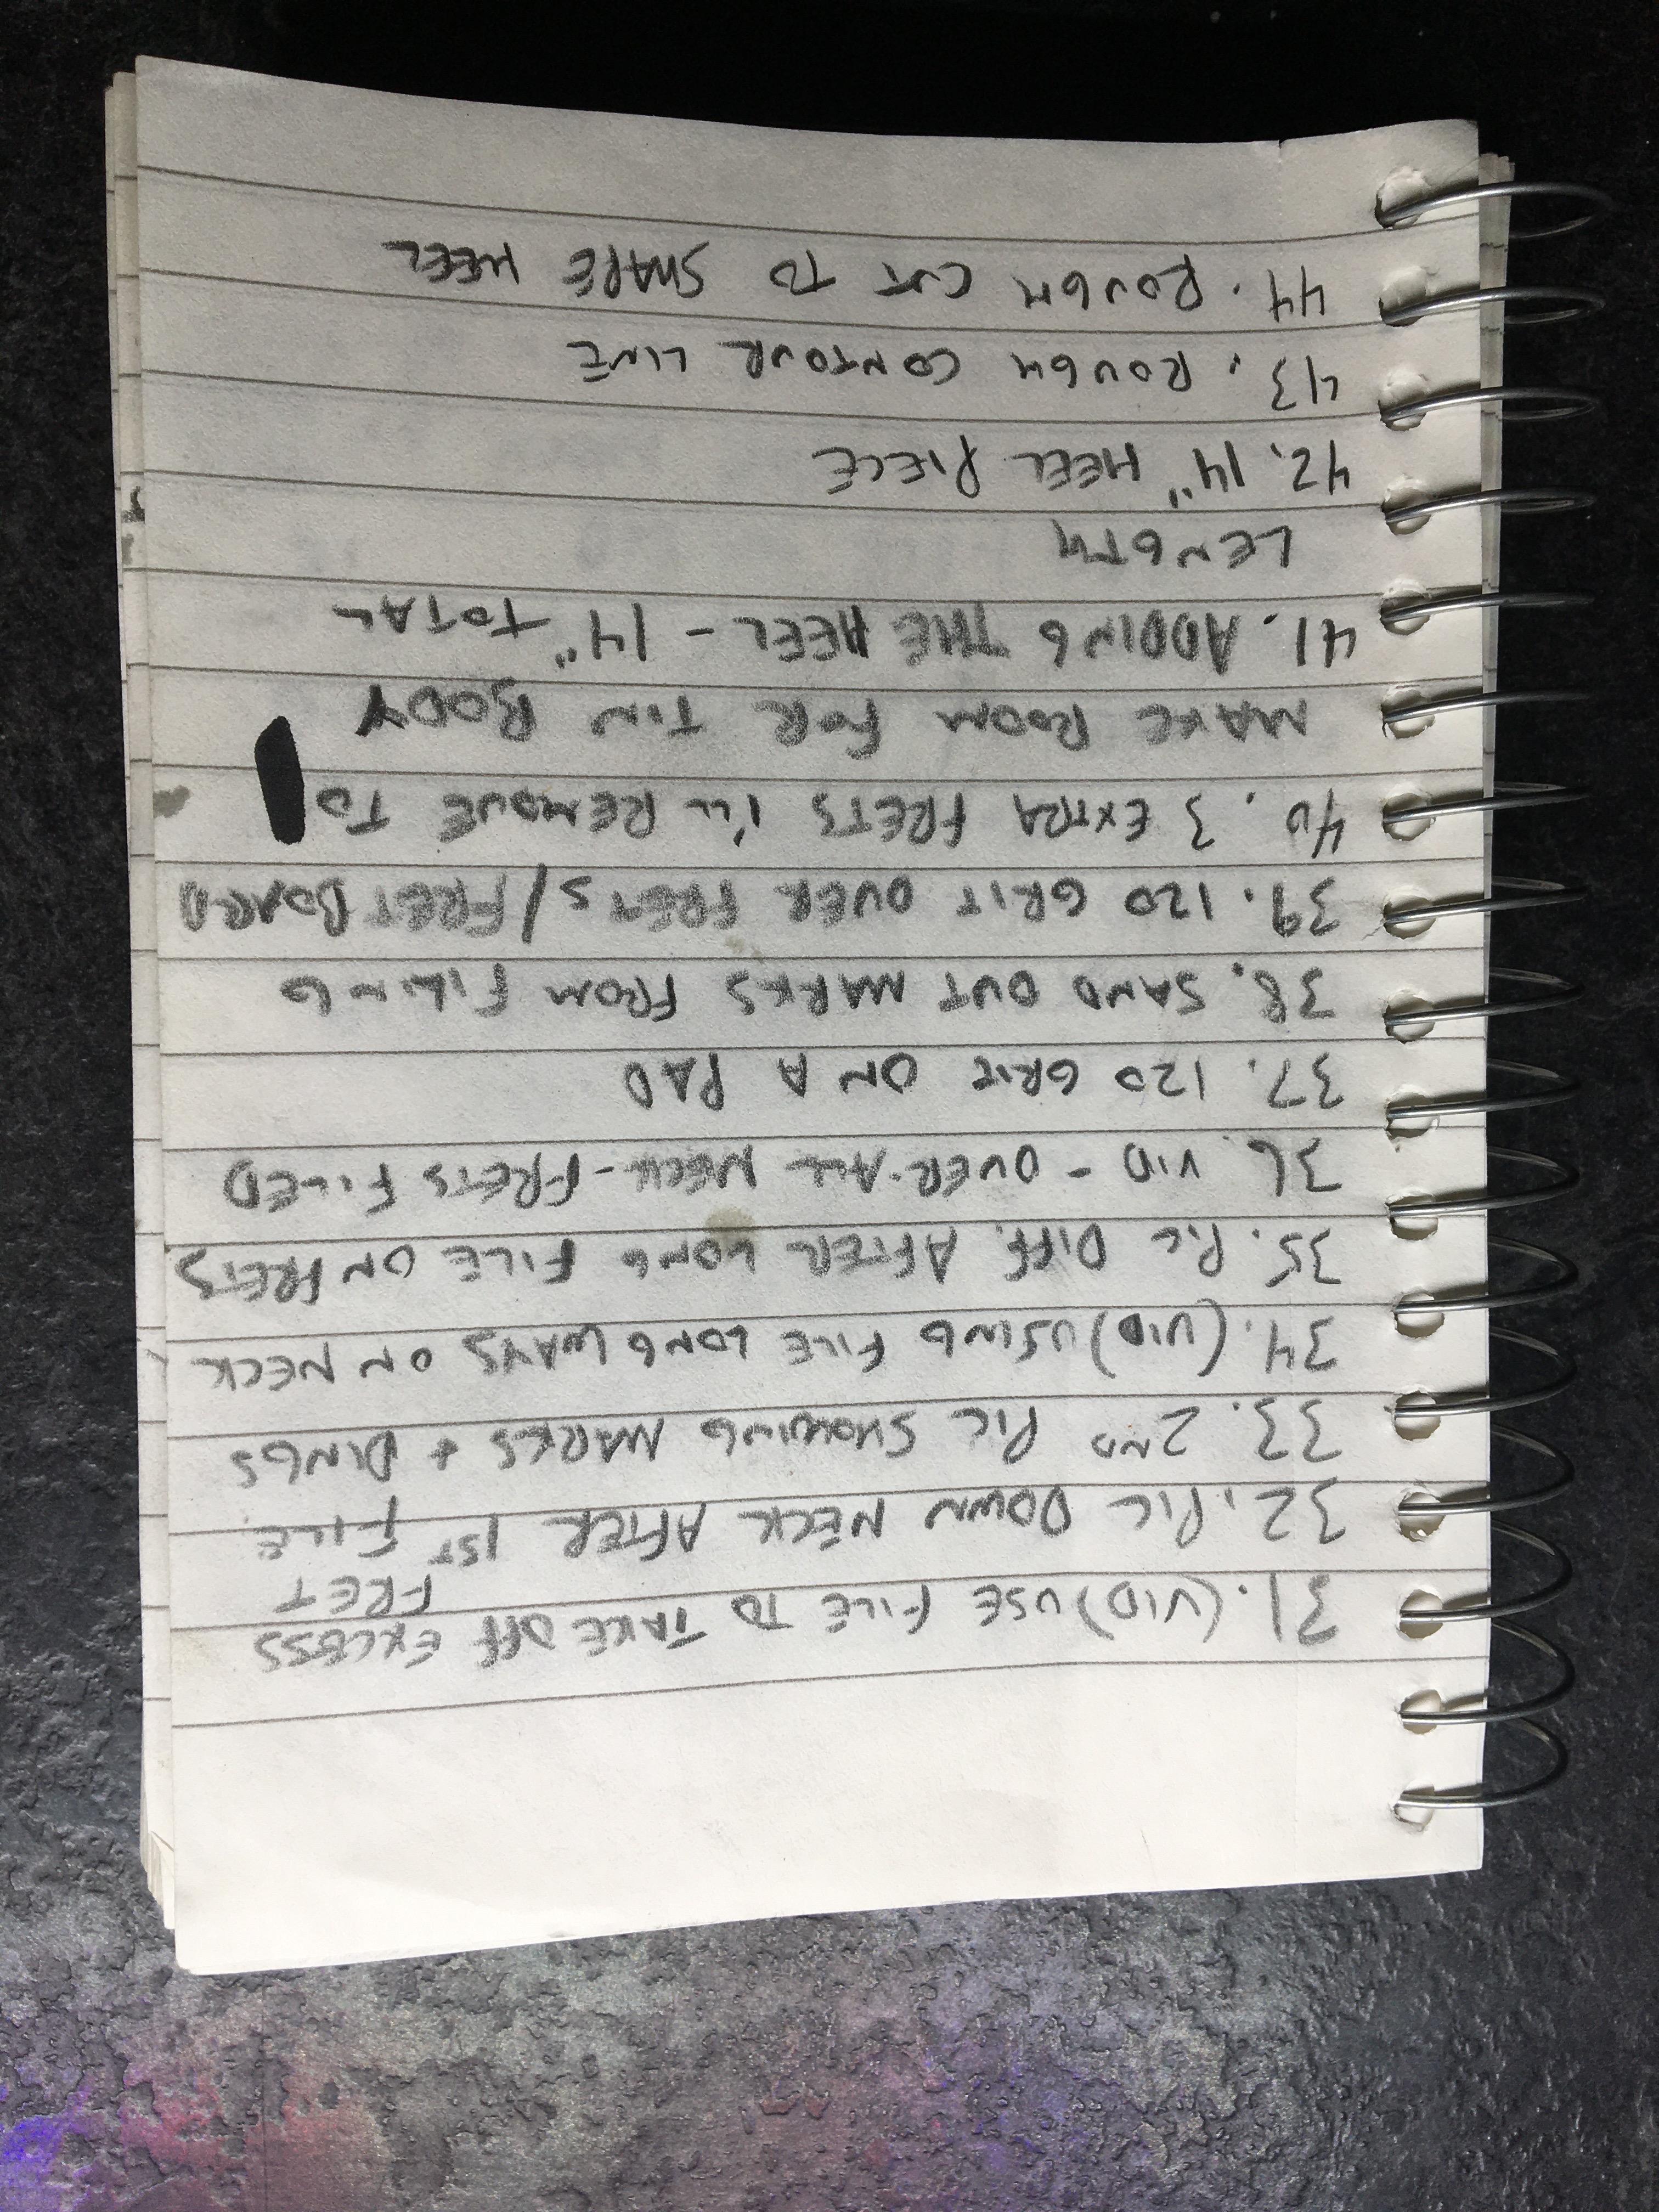 31. (VID) USE FILE TO TAKE OFF EXCESS
FRET
32. PIC DOWN NECK AFTER 1ST FILE
33. 2ND PIC SHOWING MARKS + DINGS
34. (VID) USING FILE LONG WAYS ON NECK
35. PIC DIFF. AFTER LONG FILE ON FRETS
36. VID - OVER-ALL NECK-FRETS FILED
37. 120 GRIT ON A PAD
38. SAND OUT MARKS FROM FILING
39. 120 GRIT OVER FRETS/FRETBOARD
40. 3 EXTRA FRETS I'LL REMOVE TO
MAKE ROOM FOR TIN BODY
41. ADDING THE HEEL - 14" TOTAL
LENGTH
42. 14" HEEL PIECE
43. ROUGH CONTOUR LINE
44. ROUGH CUT TO SHAPE HEEL